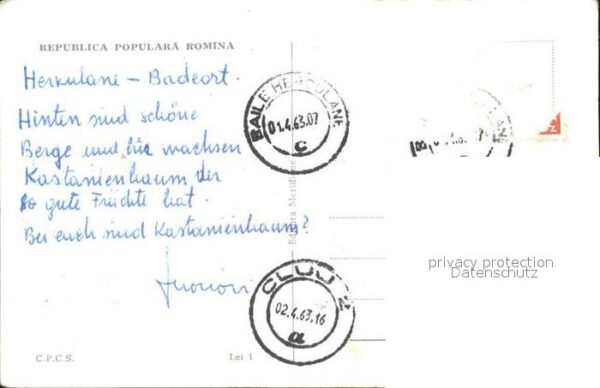 REPUBLICA POPULARĂ ROMINĂ
Herkulane – Badeort.
Hinten sind schöne
Berge und wachsen
Kastanienbaum der
so gute Früchte hat.
Bei euch sind Kastanienbaum?
BAILE HERCULANE
01.4.63.07
C
CLUJ 2
02.4.63.16
a
Editura
C.P.C.S.
Lei 1
privacy protection
Datenschutz